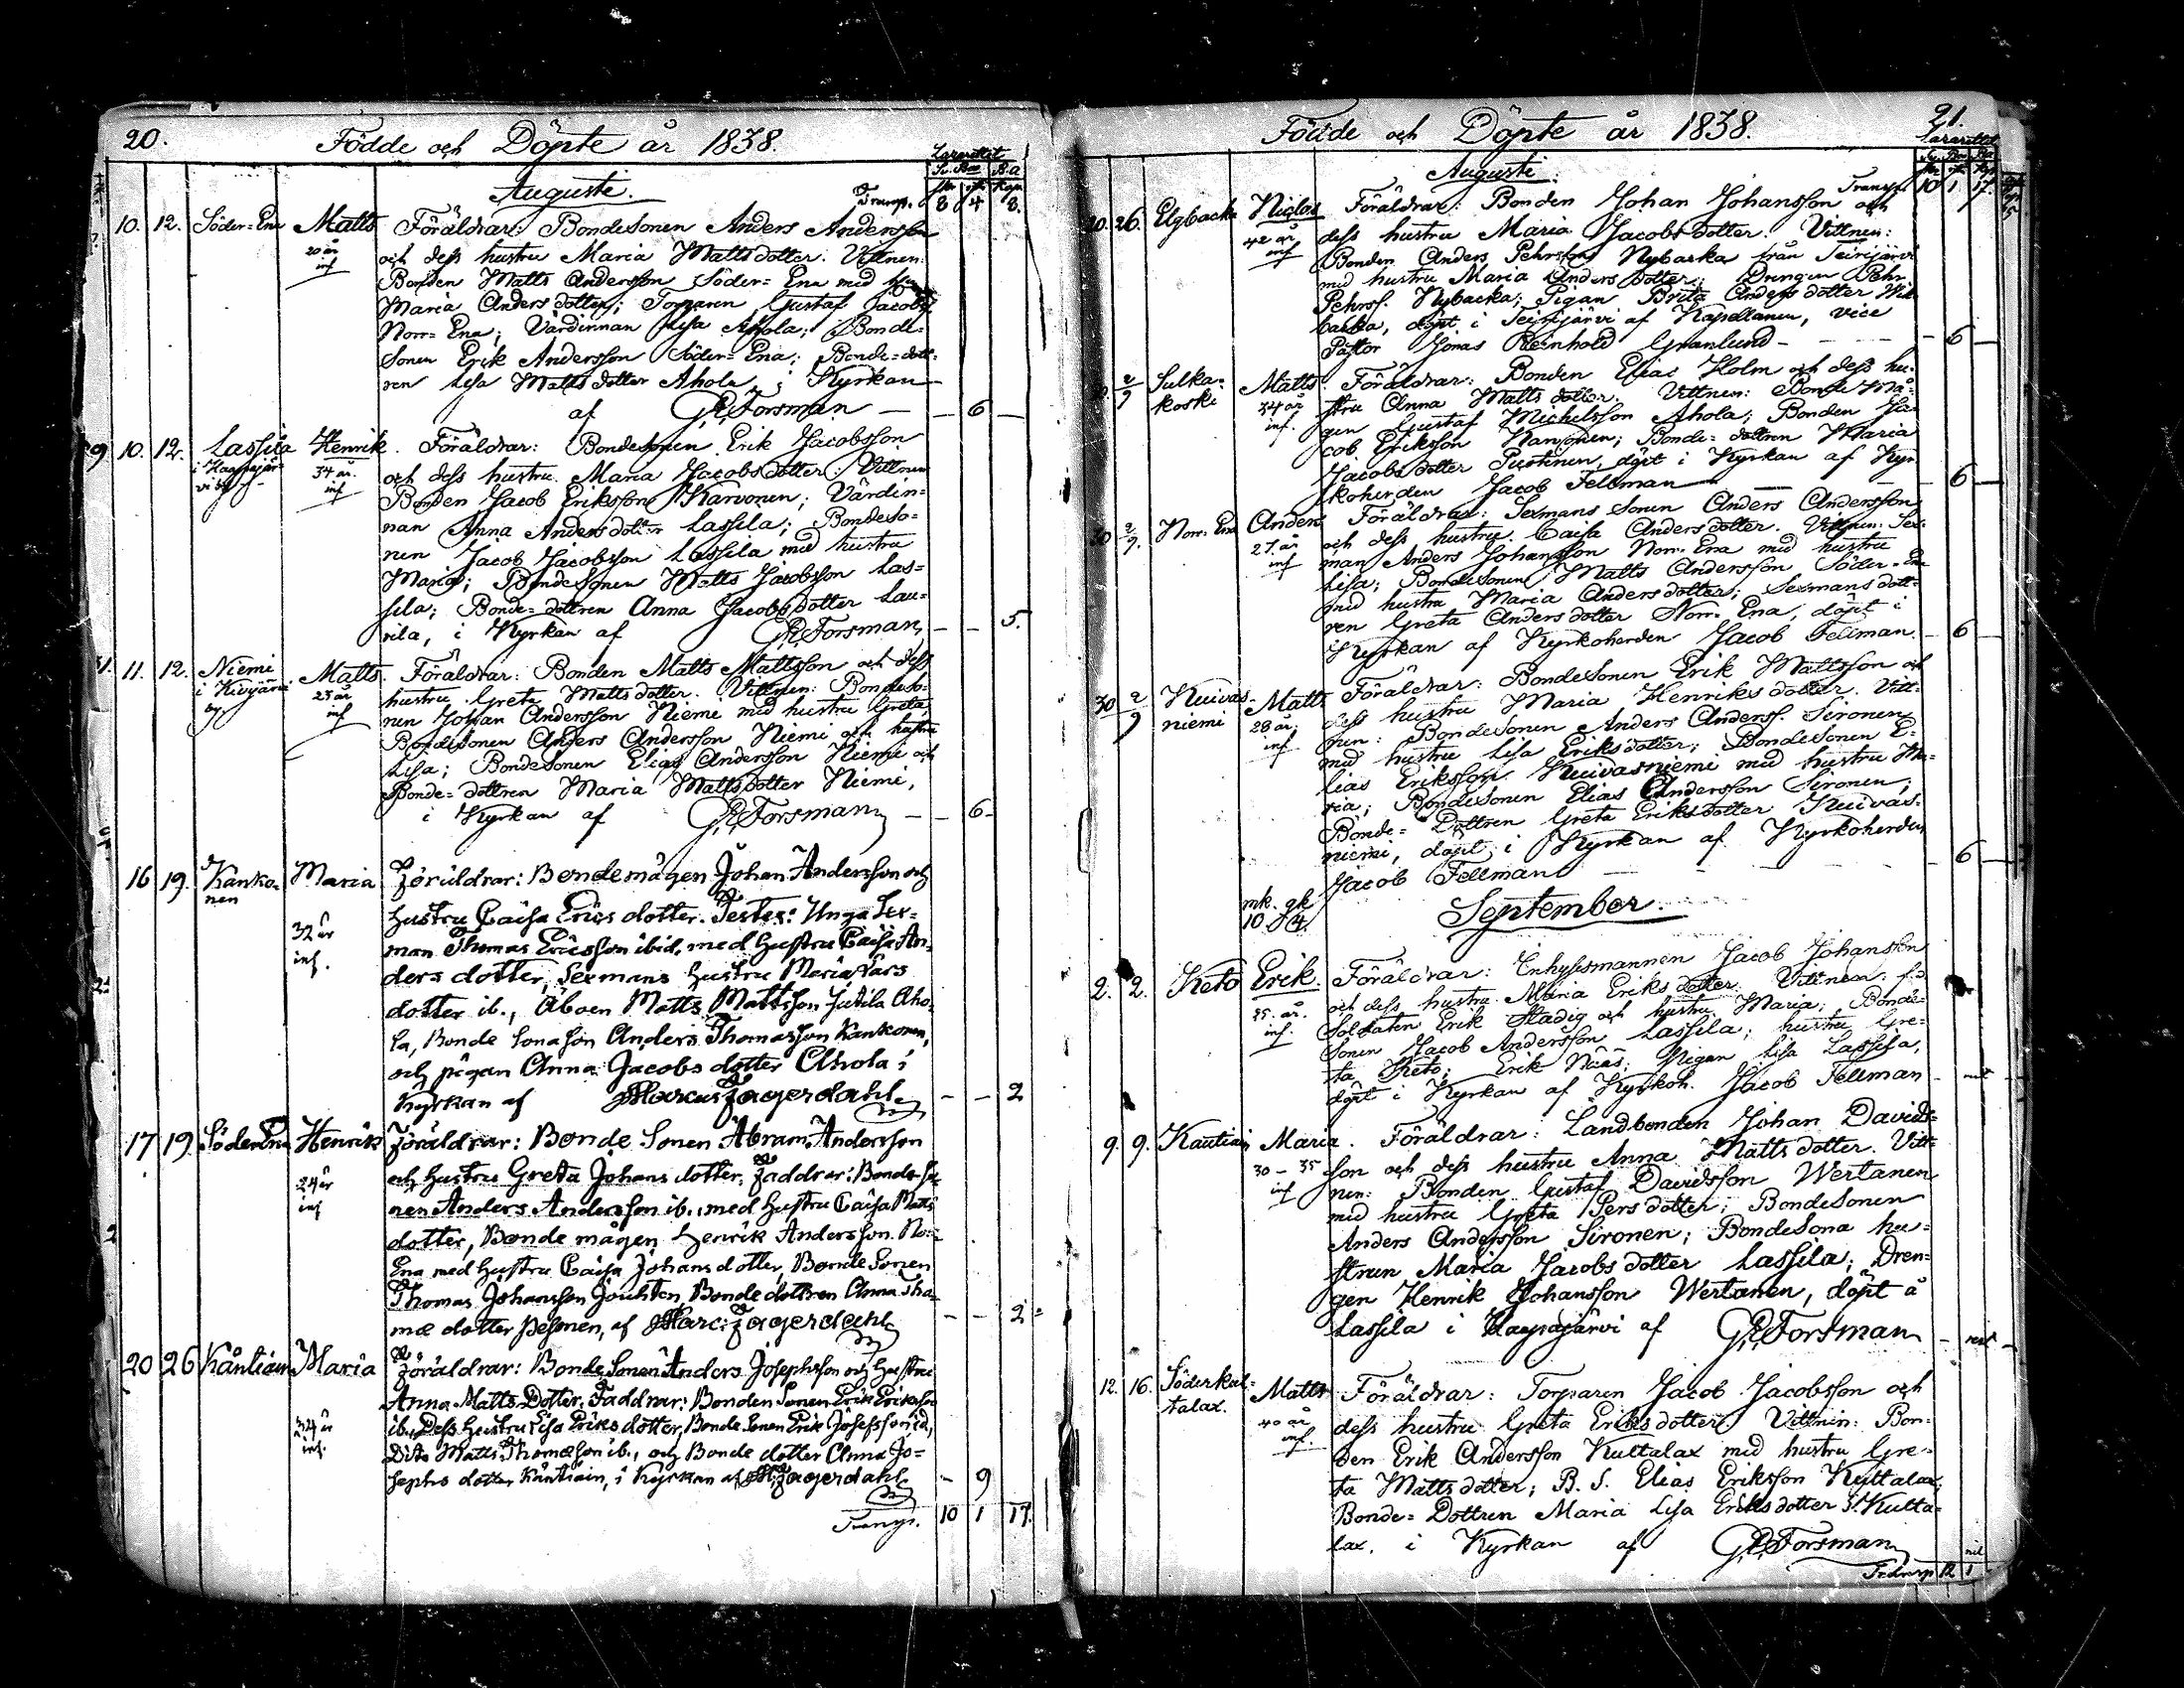 20.
Födde och Döpte år 1838.
Lazarettet
Augusti.
Transp. 8 4 8.
10. 12. Söder=Ena Matts Föräldrar: Bondesonen Anders Andersson
20 år och dess hustru Maria Mattsdotter. Vittnen:
inf Bonden Matts Andersson Söder=Ena med
Maria Andersdotter; Torparen Gustaf Jacobs.
Norr=Ena; Värdinnan Lisa Ahola; Bonde=
Sonen Erik Andersson Söder=Ena; Bonde=dott=
ren Lisa Mattsdotter Ahola, i Kyrkan
af G.R. Forsman — — 6 —
10. 12. Lassila Henrik. Föräldrar: Bondesonen Erik Jacobsson
i Kaapajär= 34 år. och dess hustru Maria Jacobsdotter: Vittnen
vi by inf Bonden Jacob Eriksson Karvonen; Värdin=
nan Anna Andersdotter Lassila; Bondeso=
nen Jacob Jacobsson Lassila med hustru
Maria; Bondesonen Matts Jacobsson Las=
sila; Bonde=dottren Anna Jacobsdotter Lau=
rila, i Kyrkan af G.R. Forsman, — — 5.
11. 12. Niemi Matts. Föräldrar: Bonden Matts Mattsson och dess
i Kivijärvi 23 år hustru Greta Mattsdotter. Vittnen: Bondeso=
by inf nen Johan Andersson Niemi med hustru Greta,
Bondesonen Anders Andersson Niemi och hustru
Lisa; Bondesonen Elias Andersson Niemi och
Bonde=dottren Maria Mattsdotter Niemi,
i Kyrkan af G.R. Forsman — — 6 –
16 19. Kanko= Maria Föräldrar: Bondemågen Johan Andersson och
nen
hustru Caisa Erics dotter. Testes: Unga Sex=
32 år man Thomas Ericsson ibid. med hustru Caisa An=
inf. ders dotter, Sexmans hustru Maria Lars
dotter ib., Åboen Matts Mattsson Jutila Aho=
la, Bonde Sona Son Anders Thomasson Kankonen,
och pigan Anna Jacobs dotter Ahola i
Kyrkan af Marcus Fagerdahl — — 2
17 19 Söder Ena Henrik Föräldrar: Bonde Sonen Abram Andersson
och hustru Greta Johans dotter. Faddrar: Bonde-So
24 år nen Anders Andersson ib., med hustru Caisa Matts
inf dotter, Bonde mågen Henrik Andersson No=
Ena med hustru Caisa Johans dotter, Bonde Sonen
Thomas Johansson Jouhten, Bonde dottren Anna Tho=
mæ dotter Pesonen, af Marc: Fagerdahl — — 2 =
20 26 Kåntiain Maria Föräldrar: Bonde Sonen Anders Josephsson och hustru
Anna Matts Dotter. Faddrar: Bonden Sonen Erik Eriksson
34 år ib., Dess hustru Lisa Eriks dotter, Bonde Sonen Erik Josefsson id,
inf. Dito Matts Thomæson ib., och Bonde dotter Anna Jo=
sephs dotter Kåntiain, i Kyrkan af M. Fagerdahl – 9
Transp. 10 1 17.
21.
Födde och Döpte år 1838.
Lazarettet
Augusti.
Transp. 10 1 17.
20. 26. Elgbacka Niclas Föräldrar: Bonden Johan Johansson och
42 år dess hustru Maria Jacobsdotter. Vittnen:
inf Bonden Anders Pehrsson Nybacka från Teirijärvi
med hustru Maria Andersdotter; Drengen Pehr
Pehrss. Nybacka; Pigan Brita Andersdotter Wid=
backa, döpt i Teirijärvi af Kapellanen, vice
Pastor Jonas Reinhold Granlund – – – 6 —
2/9 Sulka= Matts. Föräldrar: Bonden Elias Holm och dess hu=
koski 34 år stru Anna Mattsdotter. Vittnen: Bonde Må=
inf. gen Gustaf Michelsson Ahola; Bonden Ja=
cob Eriksson Nansonen; Bonde=dottren Maria
Jacobsdotter Pustinen, döpt i Kyrkan af Kyr
koherden Jacob Fellman — — 6 —
30 2/9. Norr=Ena Anders Föräldrar: Sexmans Sonen Anders Andersson
27. år och dess hustru Caisa Andersdotter. Vittnen: Sex=
inf man Anders Johansson Norr=Ena med hustru
Lisa; Bondesonen Matts Andersson Söder=Ena
med hustru Maria Andersdotter; Sexmansdott=
ren Greta Andersdotter Norr=Ena, döpt i
Kyrkan af Kyrkoherden Jacob Fellman. – 6 —
30 2/9 Kuivas= Matts Föräldrar: Bondesonen Erik Mattsson och
niemi 28 år. dess hustru Maria Henriksdotter. Vitt=
inf nen: Bondesonen Anders Anderss. Sironen
med hustru Lisa Eriksdotter; Bondesonen E=
lias Eriksson Kuivasniemi med hustru Ma=
ria; Bondesonen Elias Andersson Sironen;
Bonde=Dottren Greta Eriksdotter Kuivas=
niemi, döpt i Kyrkan af Kyrkoherden
Jacob Fellman — — 6 —
mk. qk
10 ♂ 4
September.
2. 2. Keto Erik. Föräldrar: Inhysesmannen Jacob Johansson
25. år. och dess hustru Maria Eriksdotter. Vittnen: f.d
inf. Soldaten Erik Stadig och hustru Maria; Bonde=
Sonen Jacob Andersson Lassila; hustru Gre=
ta Keto; Erik Näs; Pigan Lisa Lassila,
döpt i Kyrkan af Kyrkoh. Jacob Fellman – nil
9. 9. Kautiain Maria. Föräldrar: Landbonden Johan Davids=
30 – 35 son och dess hustru Anna Mattsdotter. Vitt=
inf nen: Bonden Gustaf Davidsson Wertanen
med hustru Greta Persdotter; Bondesonen
Anders Andersson Sironen; Bondesona hu=
strun Maria Jacobsdotter Lassila; Dren=
gen Henrik Johansson Wertanen, döpt å
Lassila i Kaapajärvi af G.R. Forsman – nil –
12. 16. Söderkul= Matts Föräldrar: Torparen Jacob Jacobsson och
talax. 40 år dess hustru Greta Eriksdotter. Vittnen: Bon=
inf. den Erik Andersson Kuttalax med hustru Gre=
ta Mattsdotter; B.S. Elias Eriksson Kyttalax;
Bonde=Dottren Maria Lisa Eriksdotter S. Kutta=
lax. i Kyrkan af G.R. Forsman nil
Transp 12 1